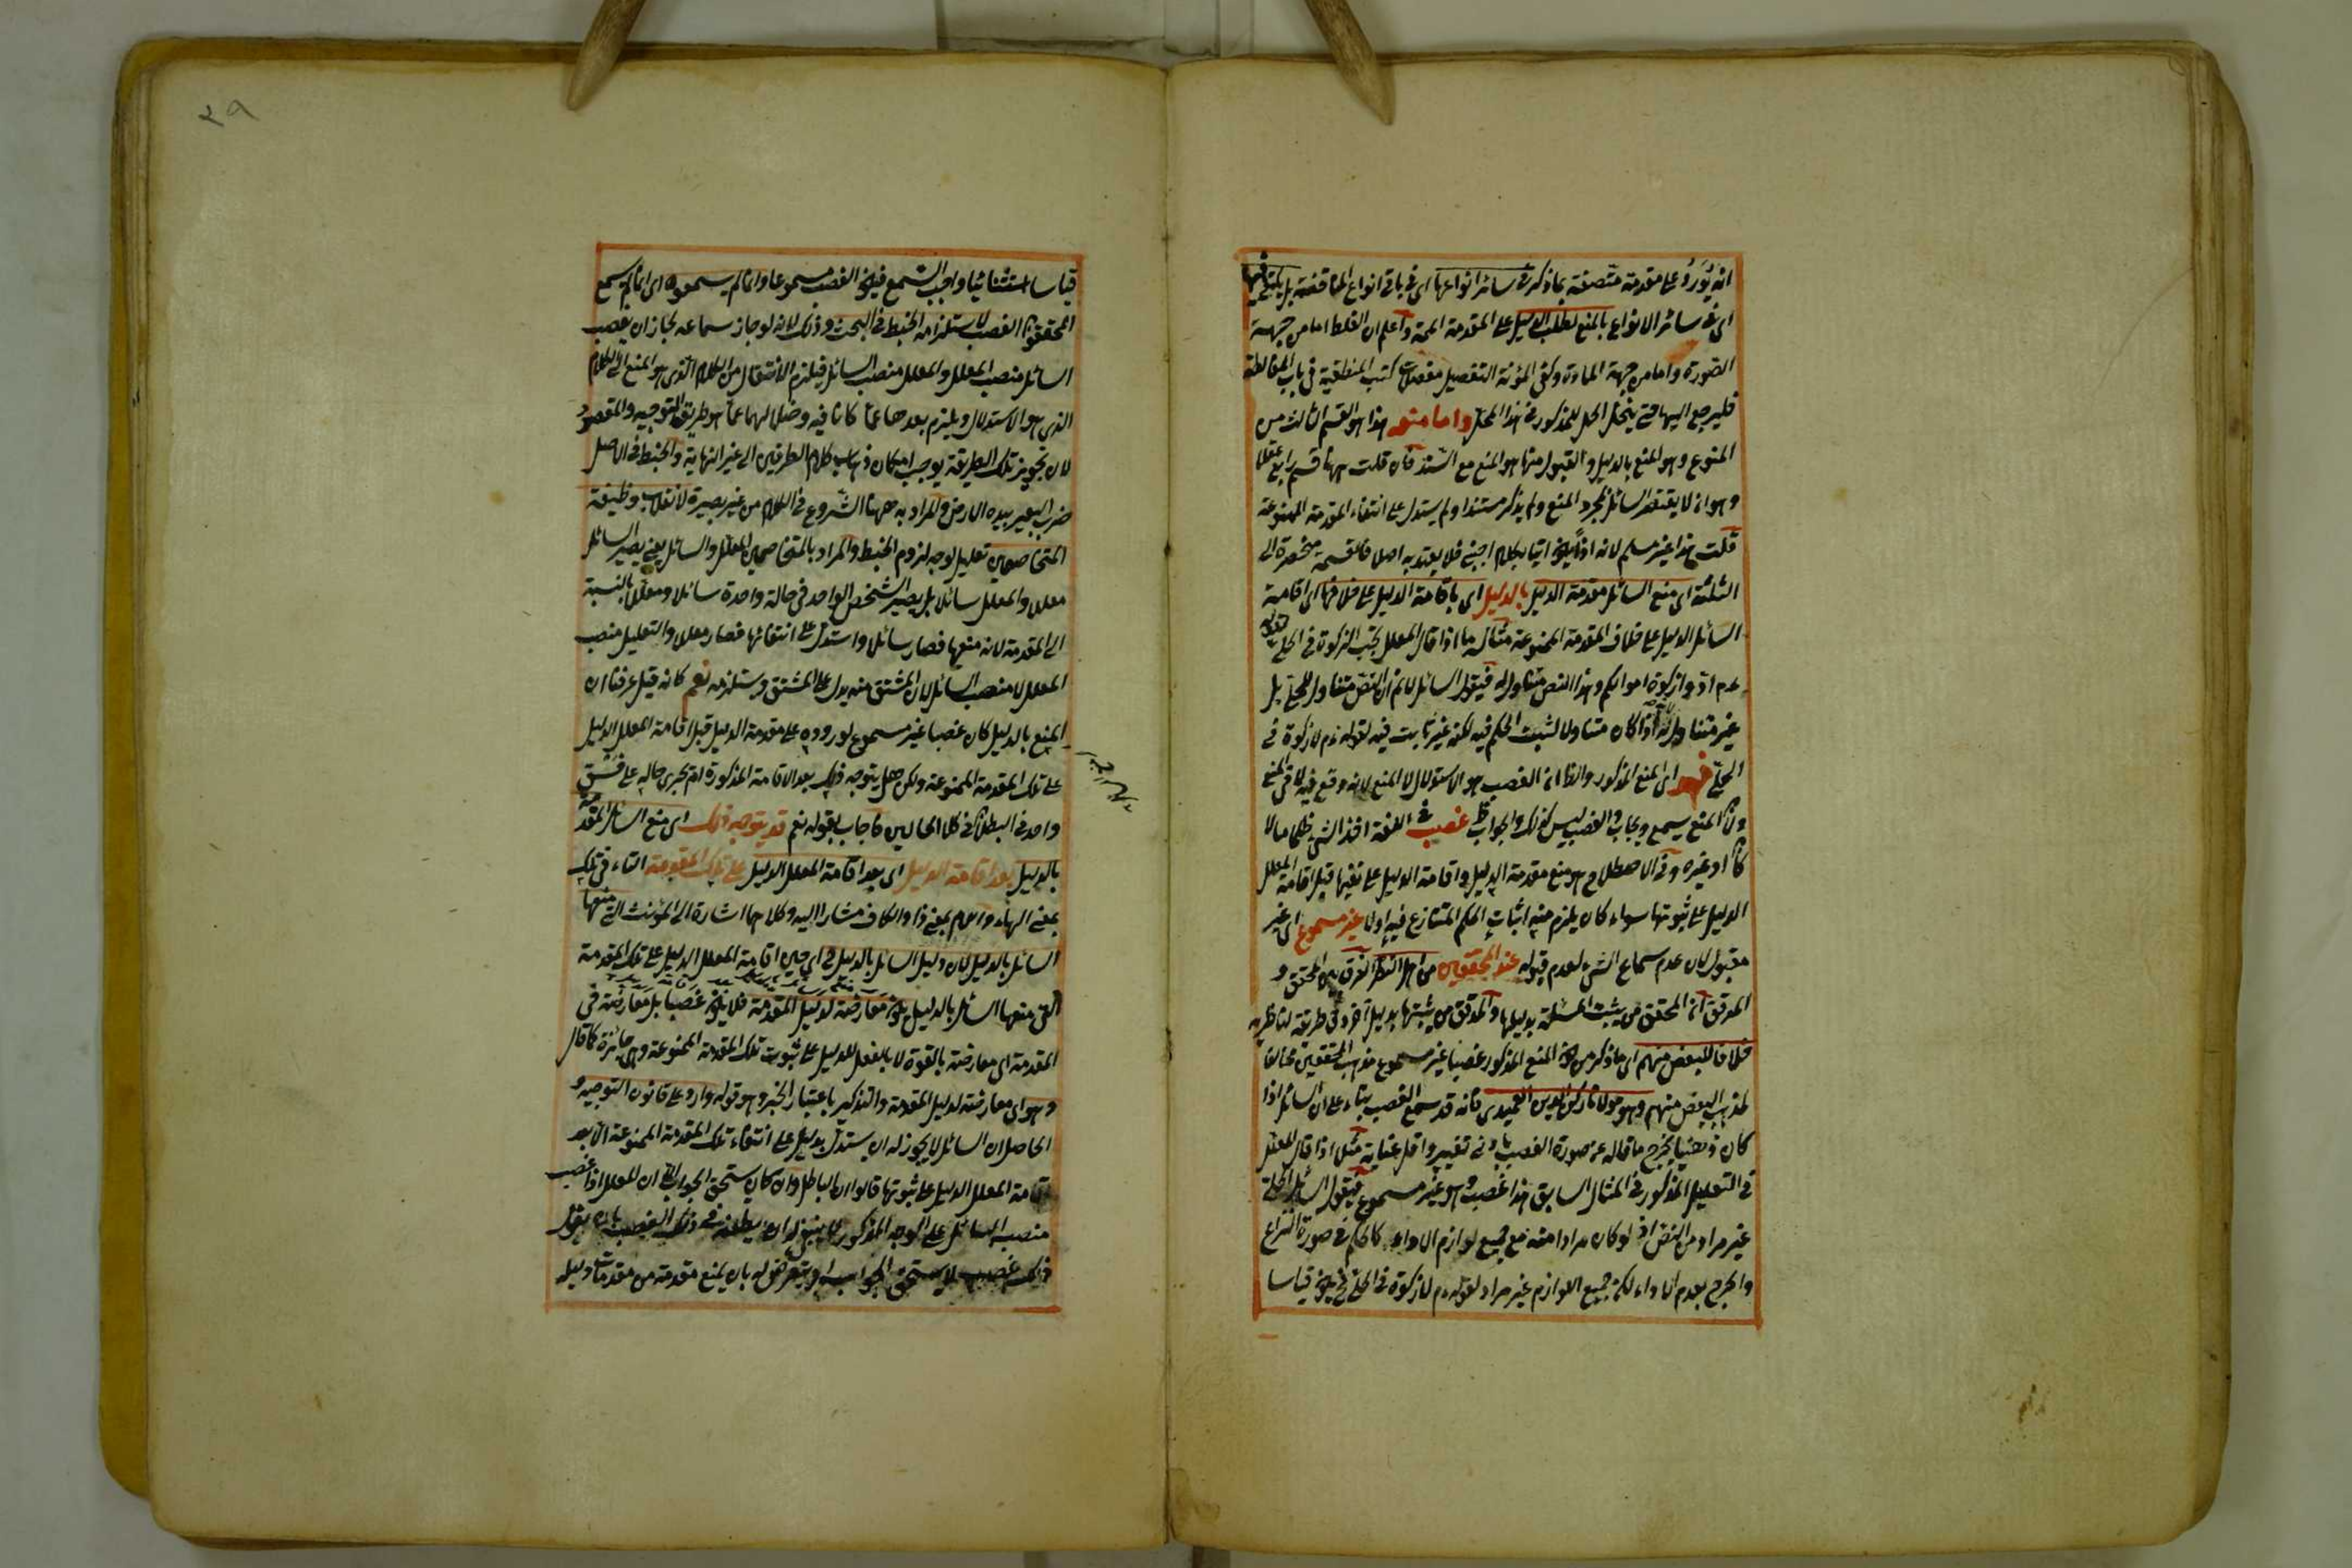 انه يورد على مقدمة متصفة بما ذكر في سائر انواعها اى في باقى انواع المناقضة بل يكتفى فيها
اى في سائر الانواع بالمنع لطلب الدليل على المقدمة المم واعلم ان الغلط اما من جهة
الصورة واما من جهة المادة وكفى المؤنة التفصيل كتب المنطقية في باب المغالطة
فليرجع اليها حتى ينحل الحل المذكور في هذا المحل واما منع هذا هو القسم الثالث من
المنوع وهو المنع بالدليل والقبول منها هو المنع مع السند فان قلت ههنا قسم رابع عقلا
وهو ان لا يقتصر السائل بمجرد المنع ولم يذكر مستندا ولم يستدل على انتفاء المقدمة الممنوعة
قلت هذا غير مسلم لانه اذا يكون اتيا بكلام اجنبى فلا يعتد به اصلا فالقسمة منحصرة الى
الثلثة اى منع السائل مقدمة الدليل بالدليل اى باقامة الدليل على خلافها اى اقامة
السائل الدليل على خلاف المقدمة الممنوعة مثال ما اذا قال المعلل يجب الزكوة في الحلى لقوله
عم ادوا زكوة اموالكم وهذا النص متناول له فيقول السائل لا نم ان النص متناول للحلى بل
غير متناول له لانه اذا كان متناولا لثبت الحكم فيه لكنه غير ثابت فيه لقوله عم لا زكوة في
الحلى فهو اى المنع المذكور والظ ان الغصب هو الاستدلال لا المنع لانه وقع فيه لا في المنع
ولان المنع يسمع ويجاب والغصب ليس كذلك والجواب ظ غصب في اللغة اخذ الشئ ظلما مالا
كان او غيره وفى الاصطلاح هو منع مقدمة الدليل واقامة الدليل على نفيها قبل اقامة المعلل
الدليل على ثبوتها سواء كان يلزم منه اثبات الحكم المتنازع فيه اولا غير مسموع اى غير
مقبول لان عدم سماع الشئ لعدم قبوله عند المحققين من اهل النظر الفرق بين المحقق و
المدقق ان المحقق من يثبت المسئلة بدليلها والمدقق من يثبتها بدليل آخر وفى طريقة لناظريه
خلافا للبعض منهم اى ما ذكر من كون المنع المذكور غصبا غير مسموع مذهب المحققين مخالفا
لمذهب البعض منهم وهو مولانا ركن الدين العميدى فانه قد سمع الغصب بناء على ان السائل اذا
كان ذهنيا يخرج ما قاله عن صورة الغصب بادنى تغيير واقل عناية مثلا اذا قال المعلل
في التعليل المذكور في المثال السابق هذا غصب وهو غير مسموع فيقول السائل الحلى
غير مراد من النص اذ لو كان مرادا منه مع جميع لوازم الاداء كالحكم في صورة النزاع
والحرج بعدم الاداء لكن جميع اللوازم غير مراد لقوله عم لا زكوة في الحلى فيكون قياسا
٢٩
قياسا استثنائيا واجب السمع فيكون الغصب مسموعا وانما لم يسمعوه اى انما لم يسمع
المحققون الغصب لاستلزامه الخبط في البحث وذلك لانه لو جاز سماعه لجاز ان يغصب
السائل منصب المعلل والمعلل منصب السائل فيلزم الانتقال من الكلام الذى هو المنع الى الكلام
الذى هو الاستدلال ويلزم بعدهما عما كانا فيه وضلالهما عما هو طريق التوجيه والمقصود
لان تجويز تلك الطريقة يوجب امكان ذهاب كلام الطرفين الى غير النهاية والخبط في الاصل
ضرب البعير بيده الارض والمراد به ههنا الشروع في الكلام من غير بصيرة لانقلاب وظيفة
المتخاصمين تعليل لوجه لزوم الخبط والمراد بالمتخاصمين المعلل والسائل يعنى يصير السائل
معللا والمعلل سائلا بل يصير الشخص الواحد في حالة واحدة سائلا ومعللا بالنسبة
الى المقدمة لانه منعها فصار سائلا واستدل على انتفائها فصار معللا والتعليل منصب
المعلل لا منصب السائل لان المشتق منه يدل على المشتق ويستلزمه نعم كانه قيل عرفنا ان
المنع بالدليل كان غصبا غير مسموع لوروده على مقدمة الدليل قبل اقامة المعلل الدليل
على تلك المقدمة الممنوعة ولكن هل يتوجه ذلك بعد الاقامة المذكورة ام يجرى حاله على نسق
واحد في البطلان في كلا الحالين فاجاب بقوله نعم قد يتوجه ذلك اى منع السائل المقدمة
بالدليل بعد اقامة الدليل اى بعد اقامة المعلل الدليل على تلك المقدمة التاء في تلك
بمعنى الهاء واللام بمعنى ذا والكاف مشارا اليه وكلاهما اشارة الى المؤنث التى منعها
السائل بالدليل لان دليل السائل بالدليل في اى حين اقامة المعلل الدليل على تلك المقدمة
التى منعها السائل بالدليل يكون معارضة لدليل المقدمة فلا يكون غصبا بل معارضة في
المقدمة اى معارضة بالقوة لا بالفعل للدليل على ثبوت تلك المقدمة الممنوعة وهى جائزة كما قال
وهو اى معارضة لدليل المقدمة والتذكير باعتبار الخبر وهو قوله وارد على قانون التوجيه و
الحاصل ان السائل لا يجوز له ان يستدل بدليل على انتفاء تلك المقدمة الممنوعة الا بعد
اقامة المعلل الدليل على ثبوتها قالوا ان الباطل وان كان يستحق الجواب الا ان المعلل اذا غصب
منصب السائل على الوجه المذكور لا ينبغى له ان يطعن في ذلك الغصب بان يقول
ذلك غصب لا يستحق الجواب او يتعرض له بان يمنع مقدمة من مقدمات دليله